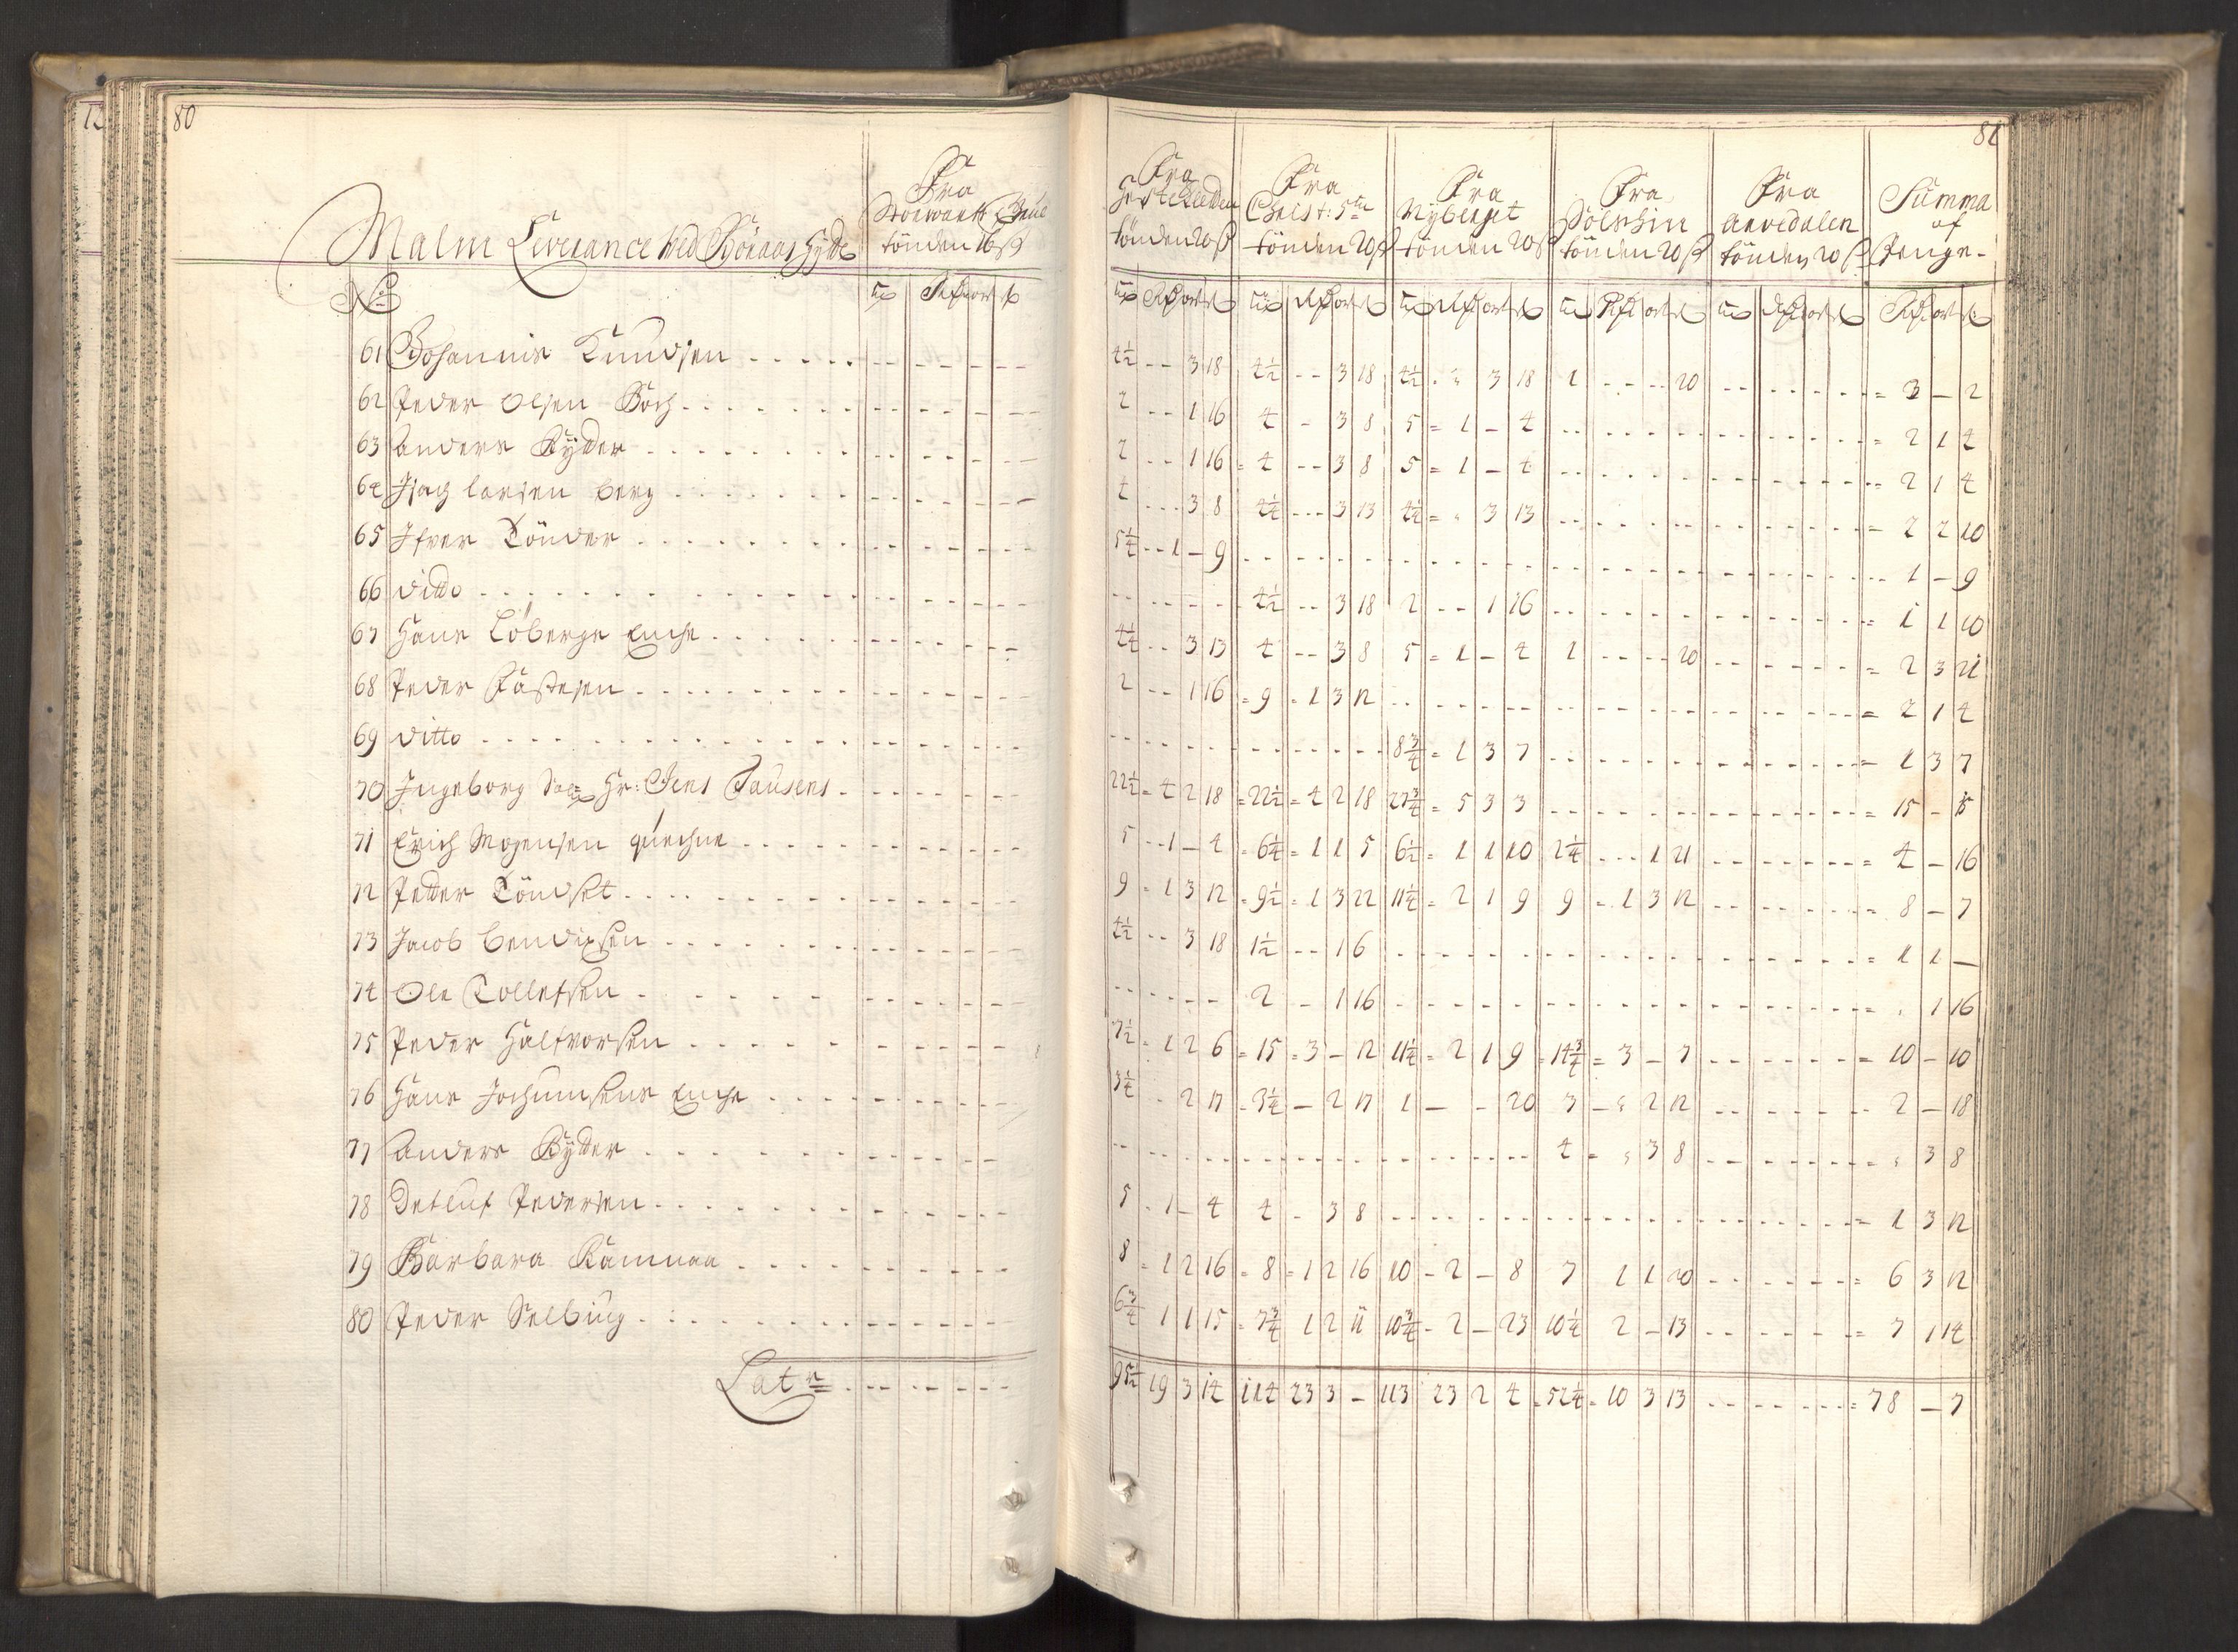 80
81
Malm Leverance ved Röraas Hÿtte
Fra Storwartz Grube tönden 16 ß
Fra Hestekletten tönden 20 ß
Fra Christ: 5te tönden 20 ß
Fra Nÿberget tönden 20 ß
Fra Sölskin tönden 20 ß
Fra Arvedalen tönden 20 ß
Summa af Penge.
No
61 Johannis Knudsen 4½ - - 3 18 4½ - - 3 18 4½ - - 3 18 1 - - - 20 = 3 - 2
62 Peder Olsen Boch 2 - - 1 16 4 - 3 8 5 = 1 - 4 = 2 1 4
63 Anders Rÿtter 2 - - 1 16 4 - - 3 8 5 = 1 - 4 = 2 1 4
64 Isach larsen berg 4 - - 3 8 4¼ - - 3 13 4¼ = - 3 13 = 2 2 10
65 Ifver Tönder 5¼ - - 1 - 9 - 1 - 9
66 ditto 4½ - - 3 18 2 - - 1 16 = 1 1 10
67 Hans Löbergs Enche 4¼ - - 3 13 4 - - 3 8 5 = 1 - 4 1 - - - 20 = 2 3 21
68 Peder Fastesen 2 - - 1 16 = 9 = 1 3 12 = 2 1 4
69 ditto 8¾ = 1 3 7 = 1 3 7
70 Ingeborg Sal: Hr: Jens Tausens 22½ = 4 2 18 = 22½ = 4 2 18 27¾ = 5 3 3 = 15 - 15
71 Erich Mogensen quechne 5 - - 1 - 4 = 6¼ = 1 1 5 6½ = 1 1 10 2¼ - - 1 21 = 4 - 16
72 Petter Tönset 9 = 1 3 12 = 9½ = 1 3 22 11¼ = 2 1 9 9 - 1 3 12 = 8 - 7
73 Jacob Bendixsen 4½ - - 3 18 1½ - - 1 6 = 1 1 -
74 Ole Tollefsen 2 - 1 16 = - 1 16
75 Peder Halfvorsen 7½ = 1 2 6 = 15 = 3 - 12 11¼ = 2 1 9 = 14¾ = 3 - 7 = 10 - 10
76 Hans Jochumsens Enche 3¼ - 2 17 = 3¼ - 2 17 1 - - 20 3 - - 2 12 - 2 - 18
77 Anders Rÿtter 4 = - 3 8 = - 3 8
78 Detluf Pedersen 5 - 1 - 4 4 - 3 8 = 1 3 12
79 Barbara Ramnaa 8 = 1 2 16 = 8 = 1 2 16 10 - 2 - 8 7 1 1 20 = 6 3 12
80 Peder Selbüg 6¾ 1 1 15 = 7¾ 1 2 11 10¾ - 2 - 23 10¼ 2 - 13 = 7 1 14
Lat: 95½ 19 3 14 114 23 3 - 113 23 2 4 = 52¼ = 10 3 13 = 78 - 7